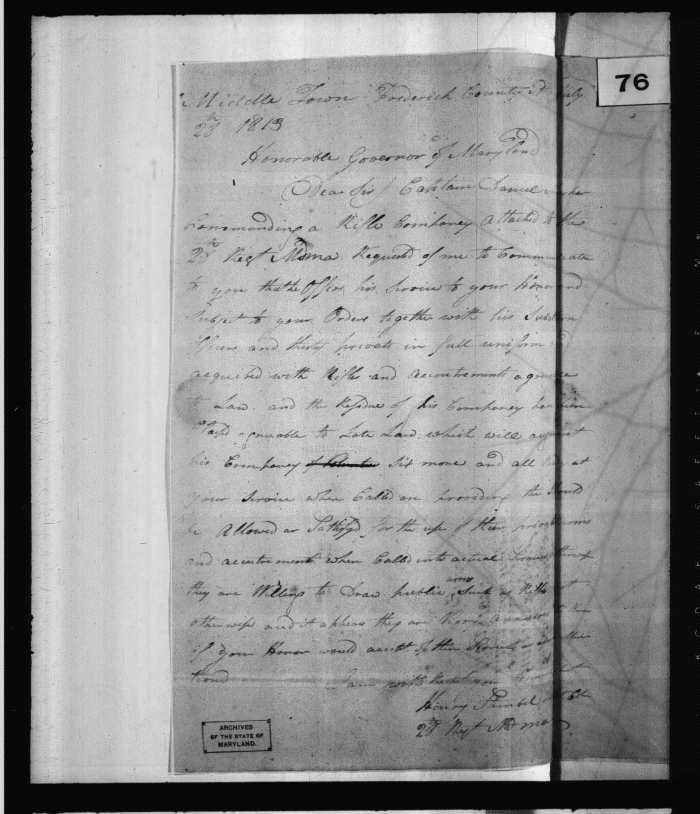 76
Middle Town Frederick County Md July
28th 1813
Honorable Governor of Maryland
Dear Sir / Captain Samuel
Commanding a Rifle Comphoney Attached to the
28th Regt Mdma Requested of me to Communicate
to you that he Offers his Service to your Honor and
Subject to your Orders together with his
officers and thirty privats in full uniform
acquibed with Rifles and accoutrement agreeable
to Law and the Residue of his Comphoney
agreuable to Late Law which will
his Comphoney Six more and all at
your Service when Called on provided the Should
be Allowed or Sattisfyd for the use of their arms
and accoutrement when Called into actual Service
they are Willing to Draw public arms Such as Rifles not
otherwise and it aphears they are
if your Honor would their
I am with
Henry Stembel
28th Regt Mdma
ARCHIVES
OF THE STATE OF
MARYLAND.